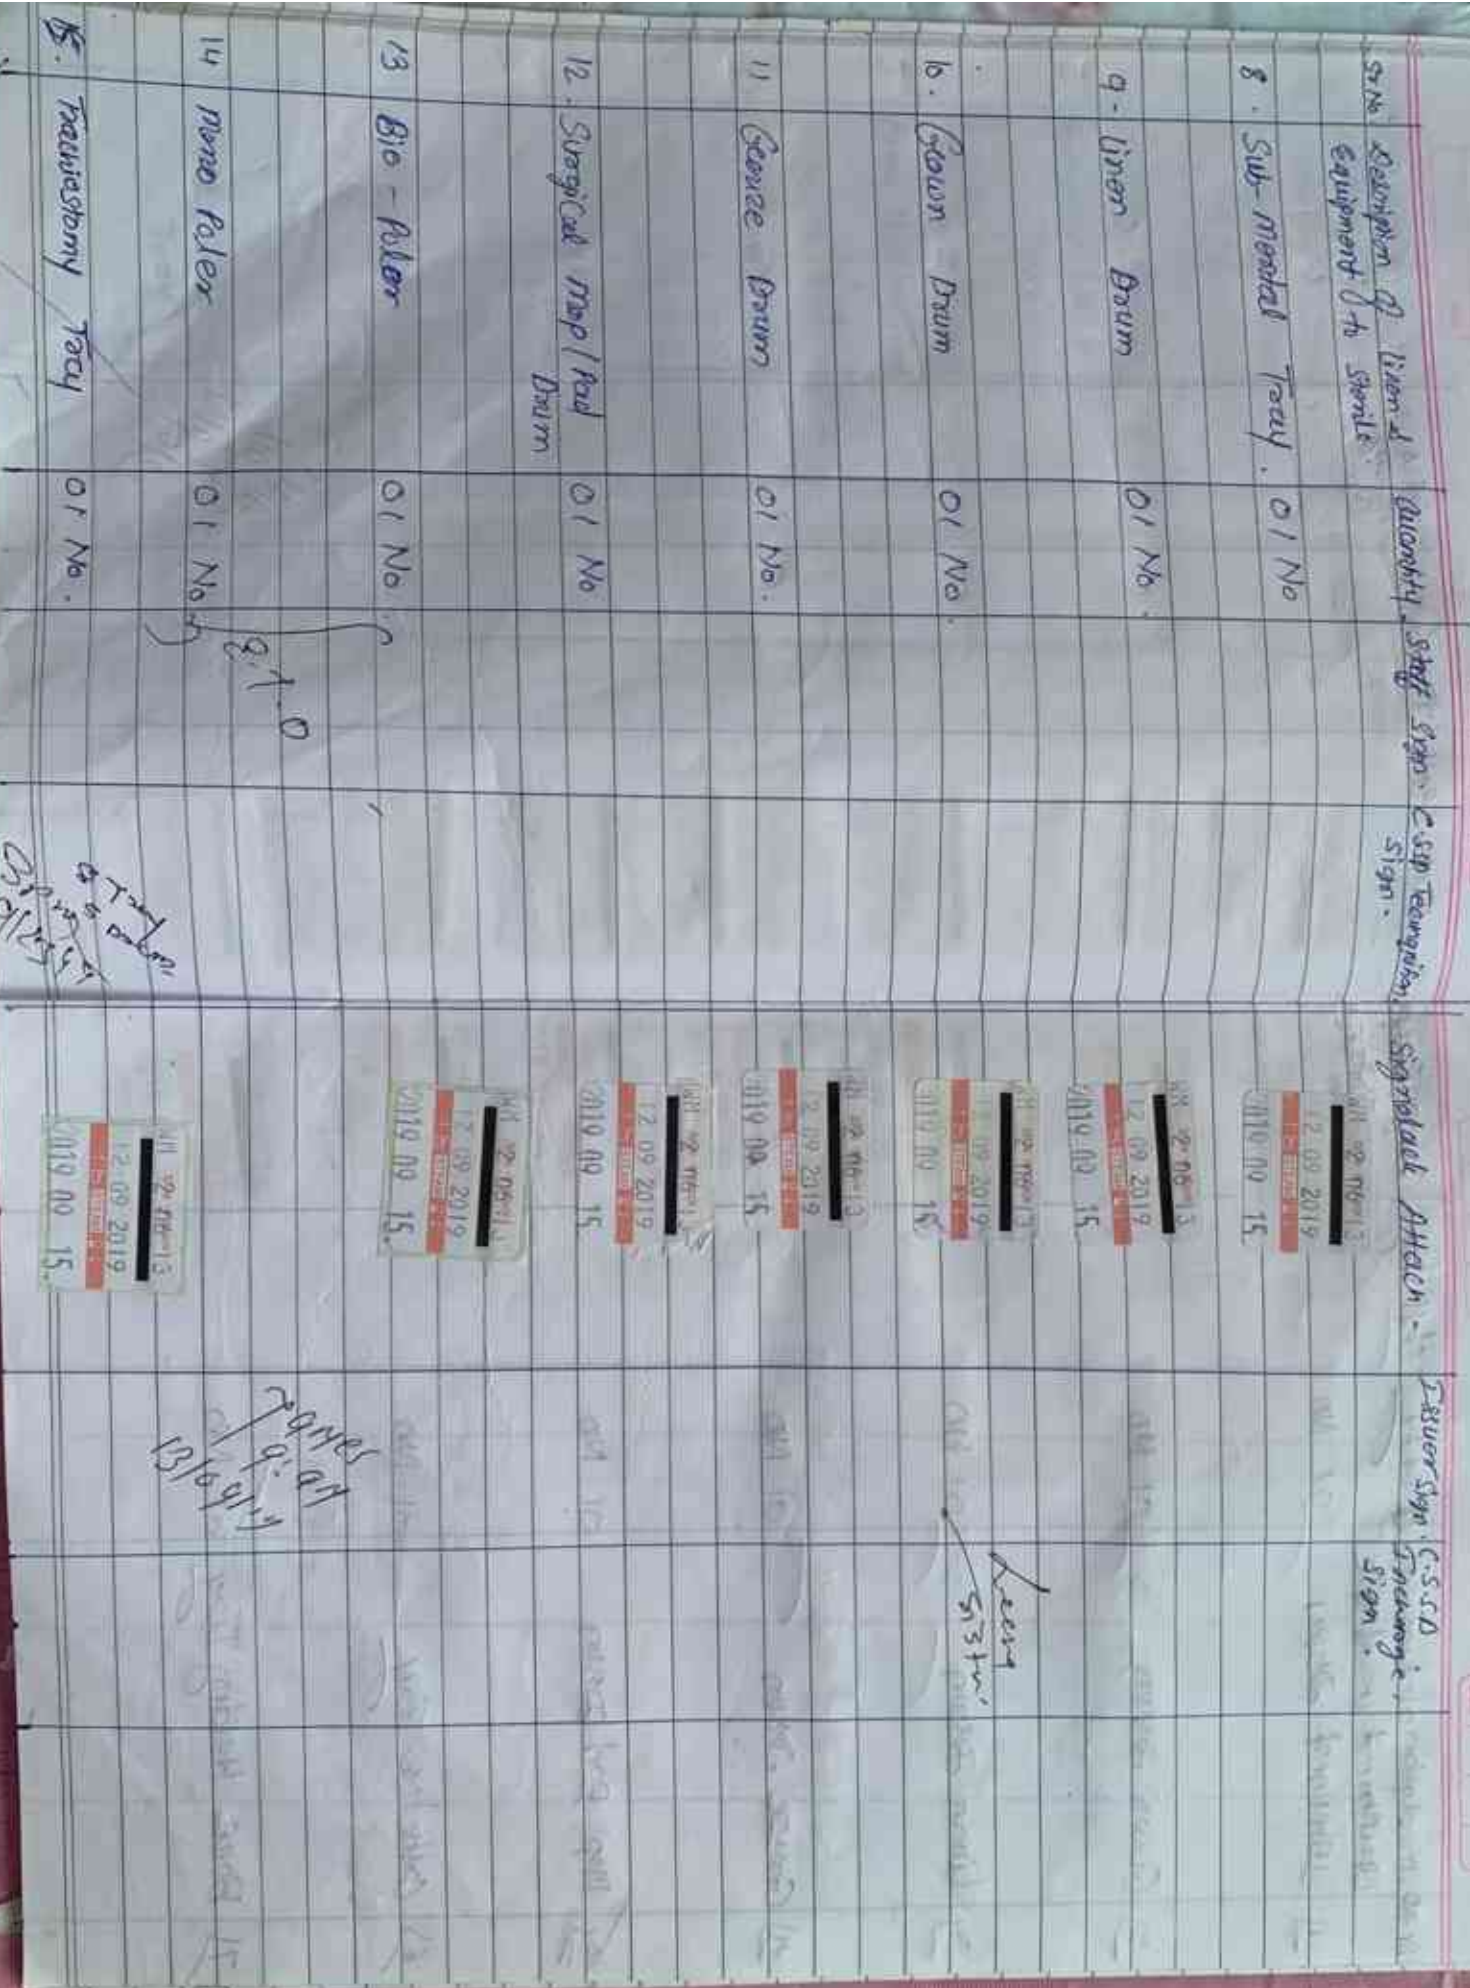 Sr No Description of linen & Equipment to sterile. Quantity. Staff Sign. C.SSD Technition Sign. Signolack Attach - Issuer Sign. C.S.S.D Incharge. Sign.
8. Sub-mendal Tracy. 01 No
12 09 2019
2019 09 15
9- linen Drum 01 No.
12 09 2019
2019 09 15
10. Gown - Drum 01 No.
12 09 2019
2019 09 15
Sister
11 Geuze Drum 01 No.
12 09 2019
2019 09 15
12. Sirogical mop/Pad Drum 01 No.
12 09 2019
2019 09 15
13 Bio - Poler 01 No.
12 09 2019
2019 09 15
14 mono Poler 01 No.
James
9:am
13/09/19
15. Trachiestomy Tracy 01 No.
12 09 2019
2019 09 15